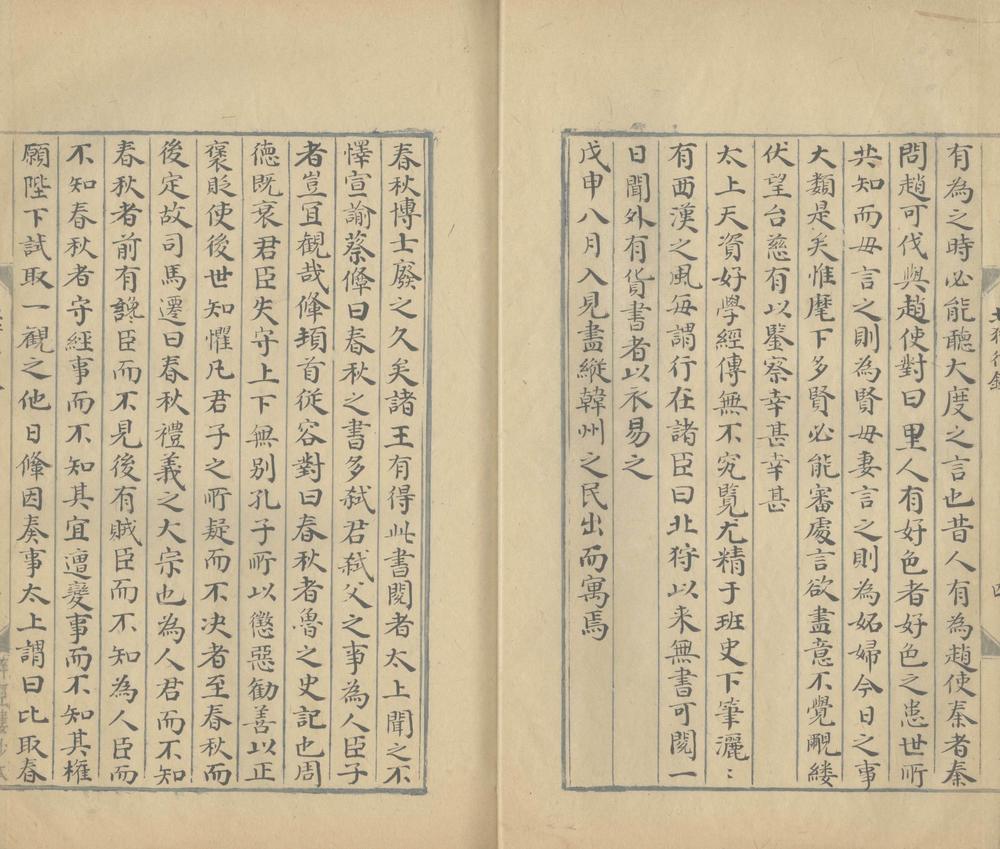 有為之時必能聽大度之言也昔人有為趙使秦者秦
問趙可伐與趙使對曰里人有好色者好色之患世所
共知而毋言之則為賢毋妻言之則為妬婦今日之事
大類是矣惟麾下多賢必能審處言欲盡意不覺覼縷
伏望台慈有以鑒察幸甚幸甚
太上天資好學經傳無不究覽尤精于班史下筆灑〻
有西漢之風每謂行在諸臣曰北狩以来無書可閱一
日聞外有貨書者以衣易之
戊申八月入見盡縱韓州之民出而寓焉
春秋博士廢之久矣諸王有得此書閱者太上聞之不
懌宣諭蔡鞗曰春秋之書多弑君弑父之事為人臣子
者豈宜觀哉鞗頓首從容對曰春秋者魯之史記也周
德既衰君臣失守上下無别孔子所以懲惡勸善以正
褒貶使後世知懼凡君子之所疑而不决者至春秋而
後定故司馬遷曰春秋禮義之大宗也為人君而不知
春秋者前有讒臣而不見後有賊臣而不知為人臣而
不知春秋者守經事而不知其宜遭變事而不知其權
願陛下試取一觀之他日鞗因奏事太上謂曰比取春